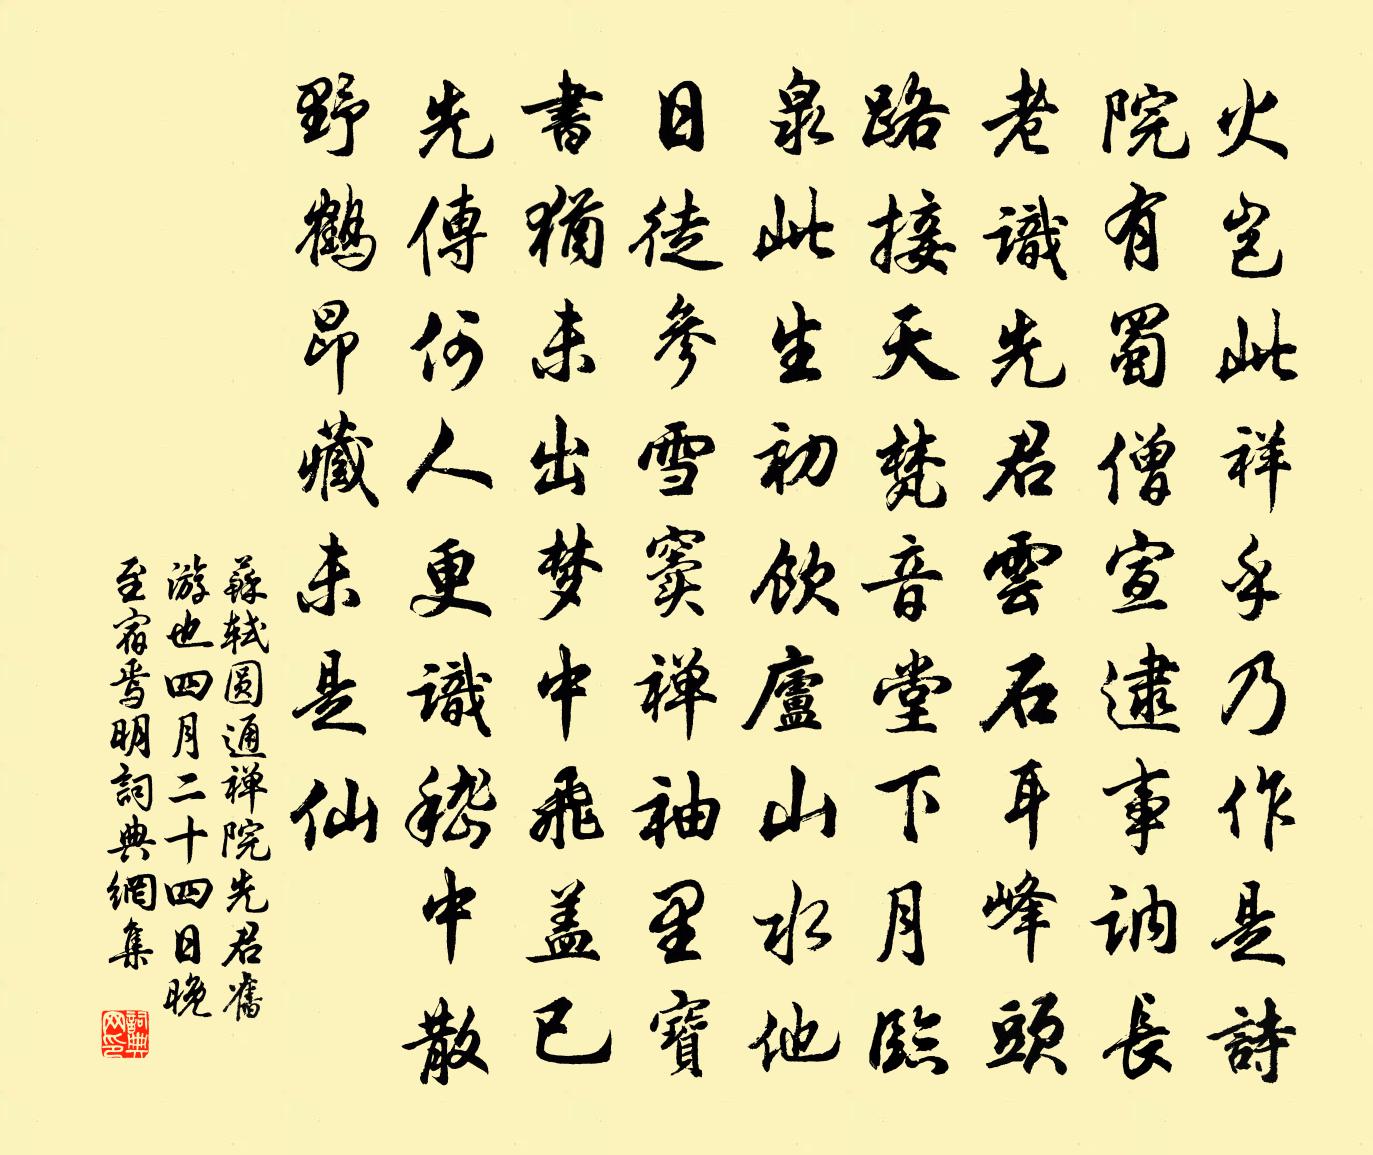 火岂此祥乎乃作是詩
院有蜀僧宣逮事讷長
老識先君雲石耳峰頭
路接天梵音堂下月臨
泉此生初飲廬山水他
日徒參雪窦禅袖里寶
書猶未出梦中飛盖已
先傳何人更識嵇中散
野鶴昂藏未是仙
蘇轼圆通禅院先君舊
游也四月二十四日晚
至宿焉明詞典網集
詞典
网印